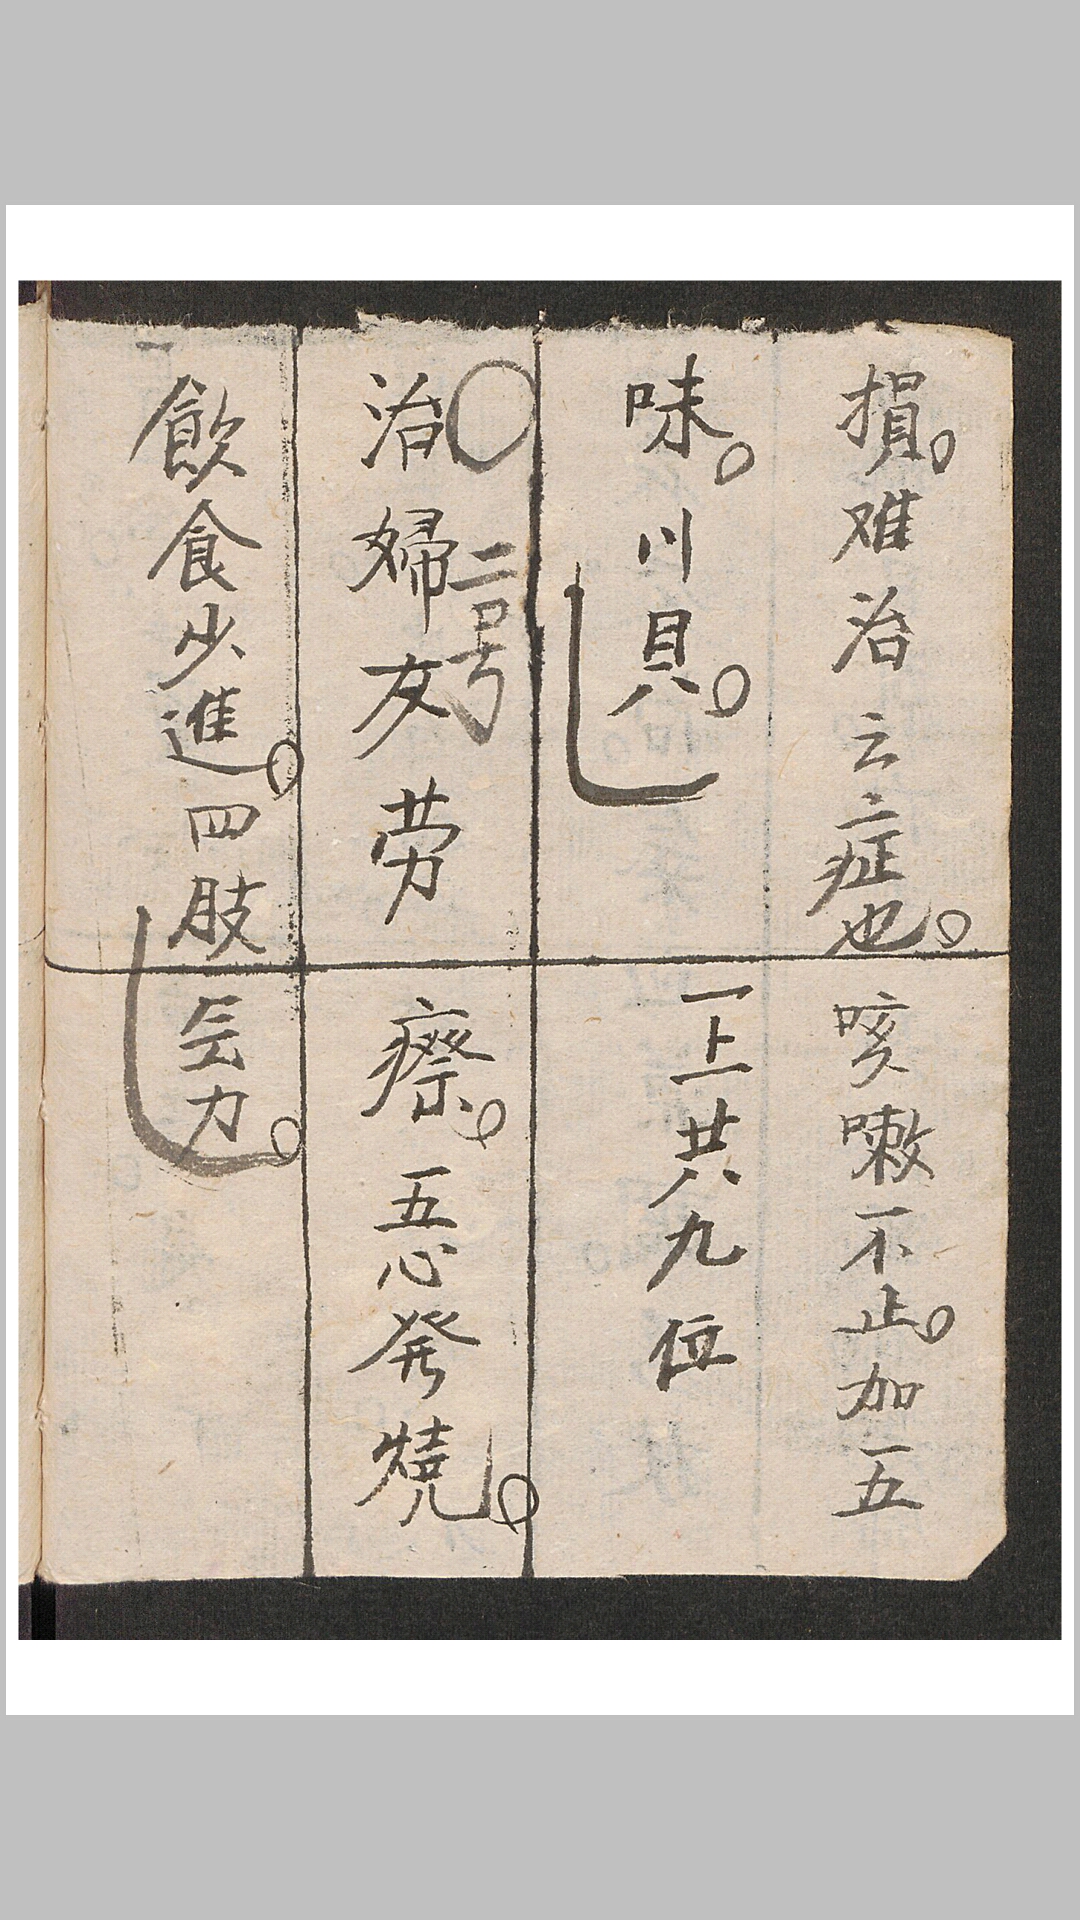 損。难治云症也。咳嗽不止。加五
味。川貝。一上共九位
二号
治婦女劳瘵。五心発燒。
飲食少進。四肢乏力。